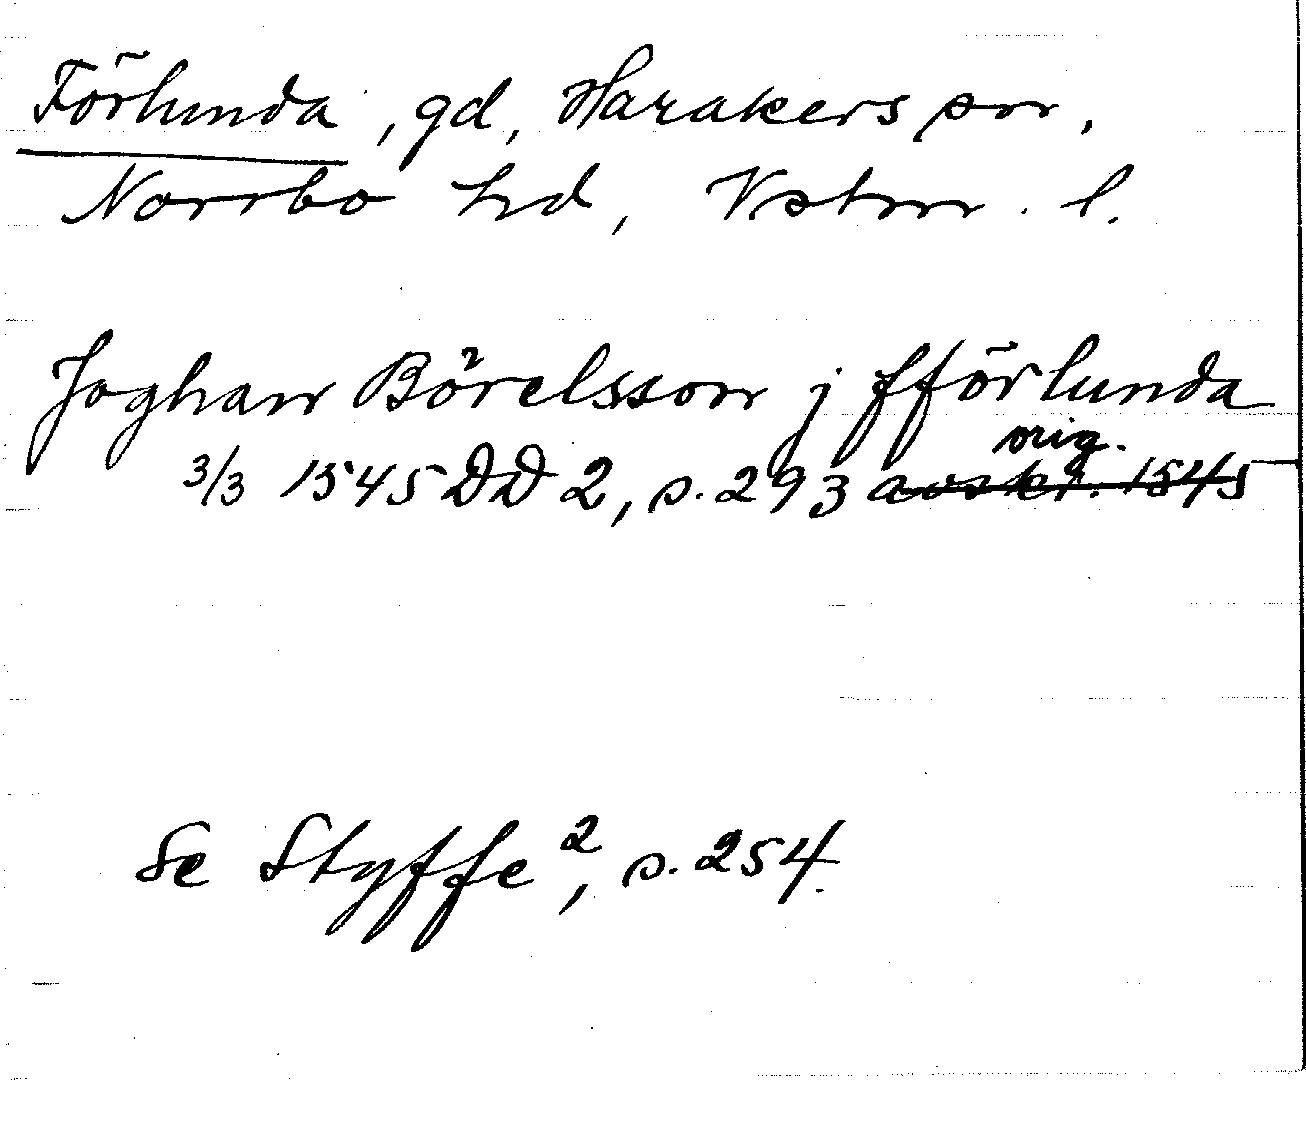 Förlunda, gd, Harakers sn,
Norrbo hd, Vstm. l.
Joghan Börelsson j fförlunda
orig.
3/3 1545 DD 2, s. 293 avskr. 1545
Se Styffe², s. 254.